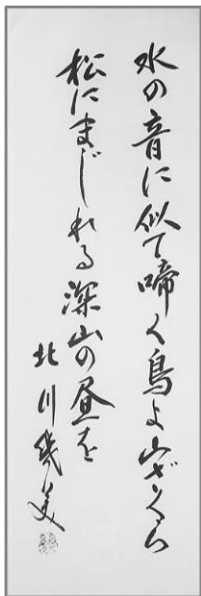 水の音に似て啼く鳥よ山ざくら
松にまじれる深山の昼を
北川幾美